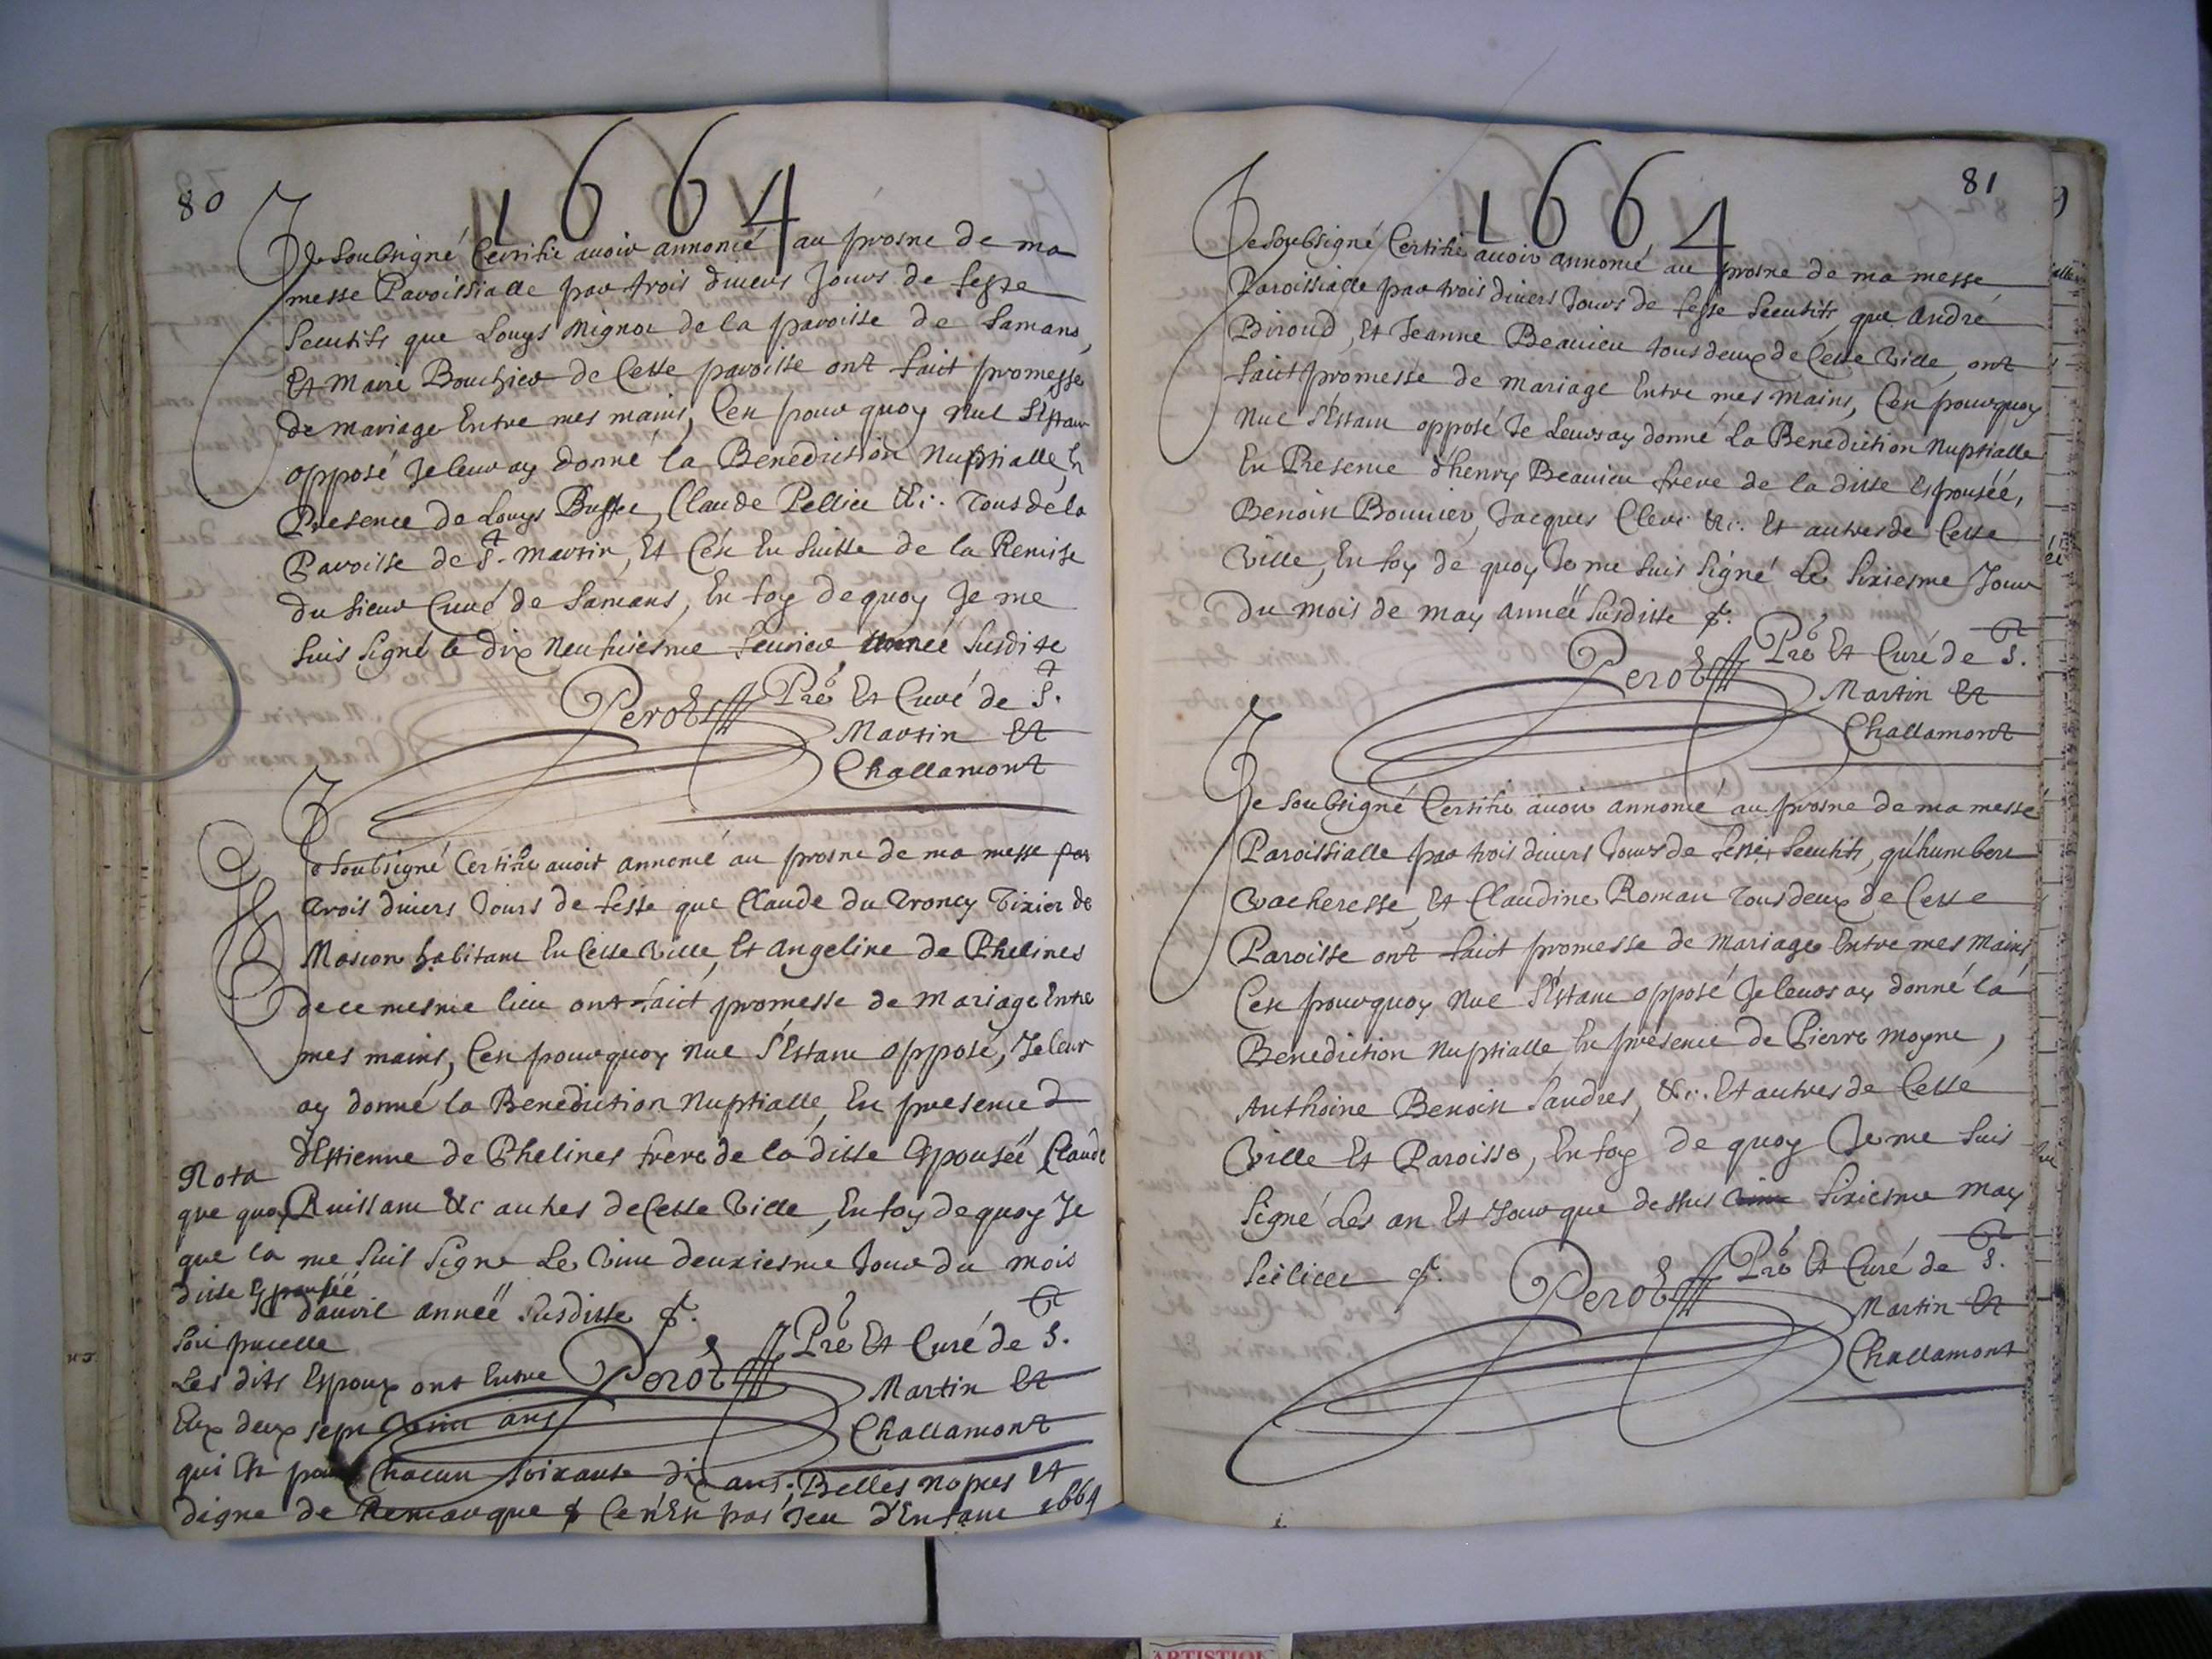 80
1664
Je soubsigné Certifie avoir annoncé au prosne de ma
messe Paroissialle par trois divers Jours de feste
secutifs que Louys Mignot de la paroisse de Samans,
Et Marie Bouchier de Cette paroisse ont faict promesse
de mariage Entre mes mains, C'en pourquoy nul s'Estant
opposé Je leur ay donné la Benediction Nuptialle, En
Presence de Louys Buffet, Claude Pellice &c. Tous de la
Paroisse de St. Martin, Et C'en En suitte de la Remise
du sieur Curé de Samans, En foy de quoy Je me
suis signé le dix neufviesme feuvrier année susdite
Perot Pre Et Curé de St.
Martin Et
Challamont
Je soubsigné Certifie avoir annoncé au prosne de ma messe par
trois divers Jours de feste que Claude du Troncy Tixier de
Mascon habitant En Cette Ville, Et Angeline de Phelines
de ce mesme lieu ont faict promesse de Mariage Entre
mes mains, C'en pourquoy Nul s'Estant opposé, Je leur
ay donné la Benediction Nuptialle, En presence d
d'Estienne de Phelines frere de la ditte Espouséé Claude
Ruissant &c autres de Cette Ville, En foy de quoy Je
me suis signé Le Vint deuxiesme Jour du mois
d'auvril annéé susditte &.
Perot Pre Et Curé de St.
Martin Et
Challamont
Nota
que quoy
que la
ditte Espouséé
soit pucelle
Les dits Espoux ont Entre
Eux deux sept Vint ans
qui Est pour Chacun soixante dix ans; Belles nopces Et
digne de Remarque & Ce n'Est pas Jeu d'Enfant 1664
81
1664
Je soubsigné Certifie avoir annoncé au prosne de ma messe
Paroissialle par trois divers Jours de feste secutifs, que André
Biroud, Et Jeanne Beauieu tous deux de Cette Ville, ont
faict promesse de mariage Entre mes mains, C'en pourquoy
Nul s'Estant opposé Je Leurs ay donné La Benediction Nuptialle
En Presence d'henry Beauieu frere de la ditte Espouséé,
Benoist Bouvier, Jacques Clere &c. Et autres de Cette
Ville, En foy de quoy Je me suis signé Le sixiesme Jour
du mois de may annéé susditte &.
Perot Pre Et Curé de St.
Martin Et
Challamont
Je soubsigné Certifie avoir annoncé au prosne de ma messe
Paroissialle par trois divers Jours de feste secutifs, qu'humbert
Vacheresse, Et Claudine Roman Tous deux de Cette
Paroisse ont faict promesse de Mariage Entre mes mains
C'en pourquoy Nul s'Estant opposé Je leurs ay donné la
Benediction Nuptialle En presence de Pierre Moyne,
Anthoine Benoist Saudres, &c. Et autres de Cette
Ville Et Paroisse, En foy de quoy Je me suis
signé Les an Et Jour que dessus sixiesme May
scilicet &.
Perot Pre Et Curé de St.
Martin Et
Challamont